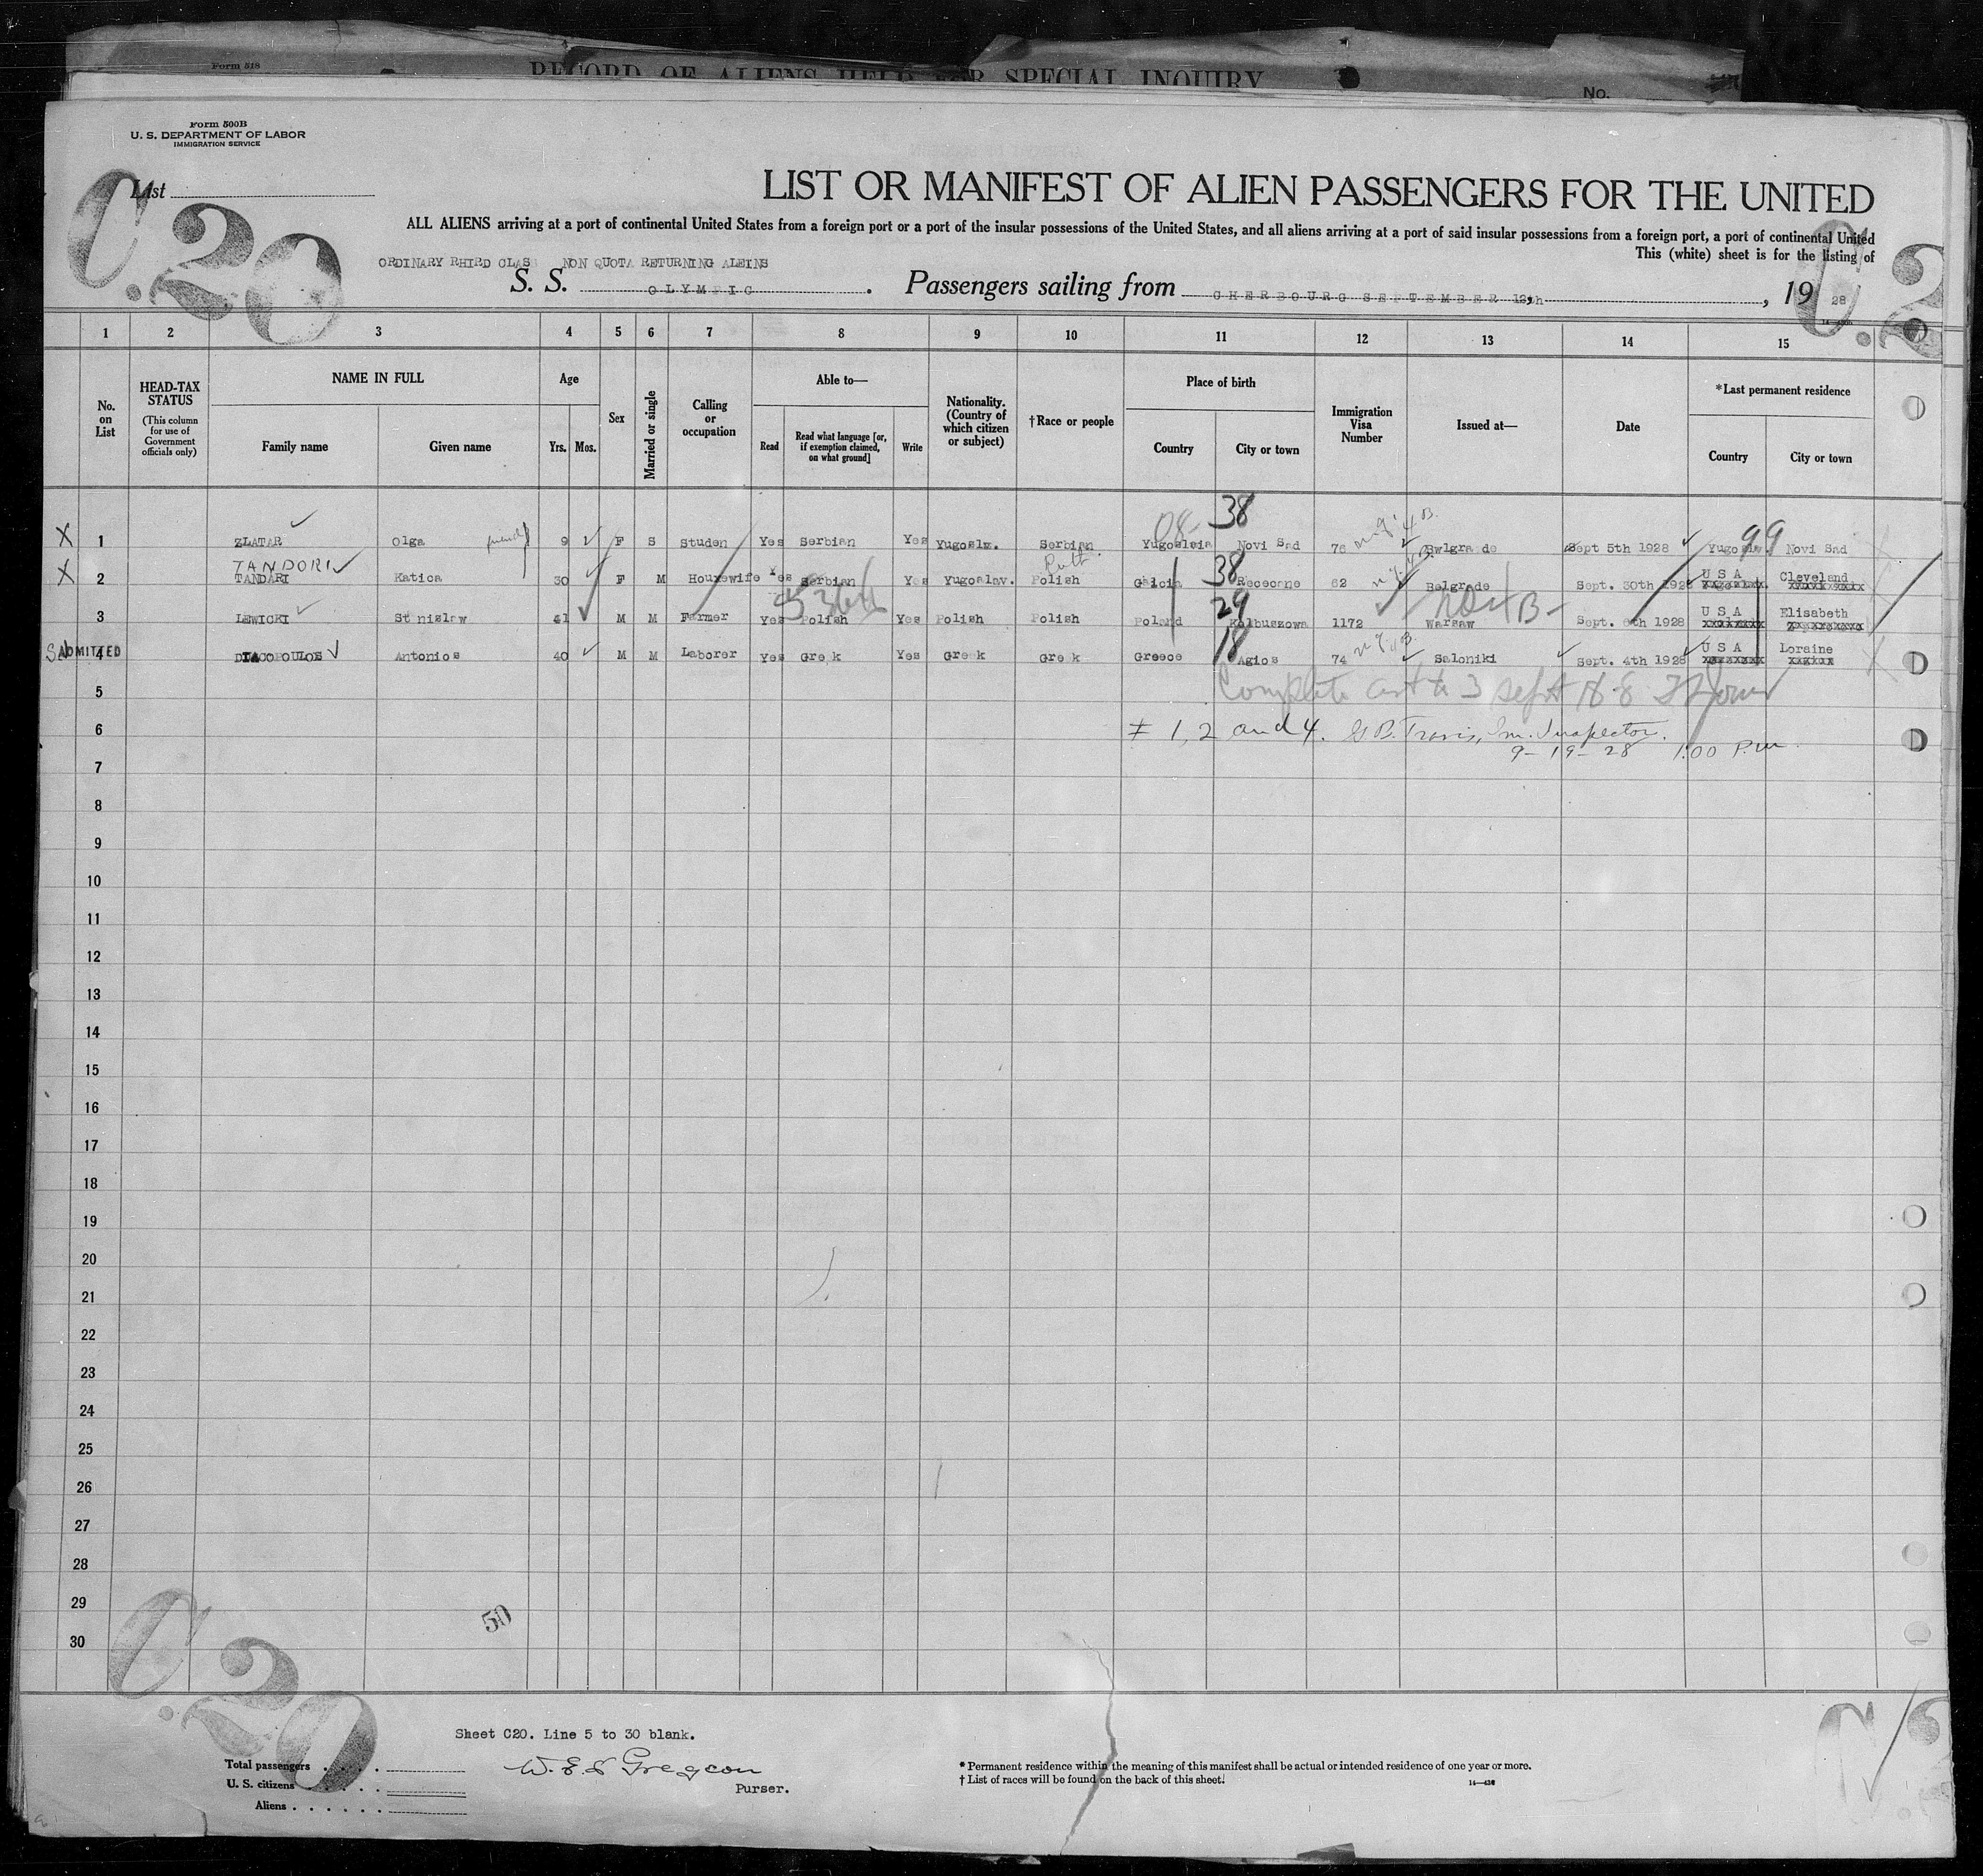 Form 518
RECORD OF ALIENS HELD FOR SPECIAL INQUIRY
No.
Form 500B
U. S. DEPARTMENT OF LABOR
IMMIGRATION SERVICE
List
C.20
LIST OR MANIFEST OF ALIEN PASSENGERS FOR THE UNITED
ALL ALIENS arriving at a port of continental United States from a foreign port or a port of the insular possessions of the United States, and all aliens arriving at a port of said insular possessions from a foreign port, a port of continental United
This (white) sheet is for the listing of
ORDINARY RHIRD CLAS NON QUOTA RETURNING ALEINS
S. S. OLYMPIC. Passengers sailing from CHERBOURG SEPTEMBER 12th, 1928
C.2
1 2 3 4 5 6 7 8 9 10 11 12 13 14 15
No. on List
HEAD-TAX STATUS
(This column for use of Government officials only)
NAME IN FULL
Family name Given name
Age
Yrs. Mos.
Sex
Married or single
Calling or occupation
Able to—
Read
Read what language [or, if exemption claimed, on what ground]
Write
Nationality. (Country of which citizen or subject)
†Race or people
Place of birth
Country City or town
Immigration Visa Number
Issued at—
Date
*Last permanent residence
Country City or town
38
08
99
X 1 ZLATAR Olga 9 F S Studen Yes Serbian Yes Yugoslv. Serbian Yugoslvia Novi Sad 76 Bwlgra de Sept 5th 1928 Yugoslv. Novi Sad
TANDORI
Ruth
X 2 TANDARI Katica 30 F M Housewife Yes Serbian Yes Yugoslav. Polish Galcia 38 Rececone 62 Belgrade Sept. 30th 1928 U S A Cleveland
3 LEWICKI St nislaw 41 M M Farmer Yes Polish Yes Polish Polish Poland 29 Kolbuszowa 1172 Warsaw Sept. 6th 1928 U S A Elisabeth
ADMITTED
4 DIACOPOULOS Antonios 40 M M Laborer Yes Gre k Yes Gre k Gre k Greece 18 Agios 74 Saloniki Sept. 4th 1928 U S A Loraine
5
# 1, 2 and 4. G B. Travis, Im. Inspector.
6
9-19-28 1:00 P.M
7
8
9
10
11
12
13
14
15
16
17
18
19
20
21
22
23
24
25
26
27
28
29
30
50
C.20
Sheet C20. Line 5 to 30 blank.
Total passengers
U. S. citizens
Aliens
Purser.
* Permanent residence within the meaning of this manifest shall be actual or intended residence of one year or more.
† List of races will be found on the back of this sheet.